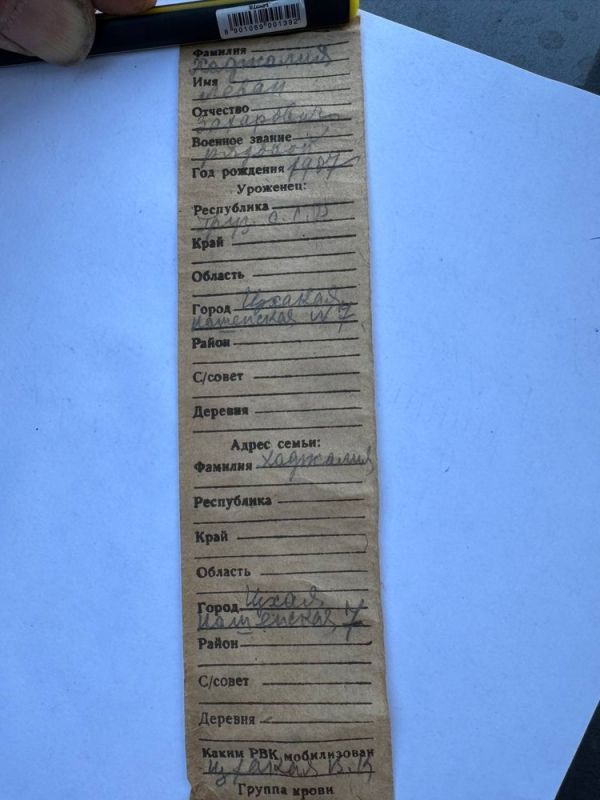 8 901069 901992
Фамилия
Хаджалия
Имя
Отчество
Захарович
Военное звание
рядовой
Год рождения 1907
Уроженец:
Республика
Груз. С.С.Р
Край
Область
Город Цхакая
№ 7
Район
С/совет
Деревня
Адрес семьи:
Фамилия Хаджалия
Республика
Край
Область
Город Цхая
7
Район
С/совет
Деревня
Каким РВК мобилизован
Цхакая В.К
Группа крови